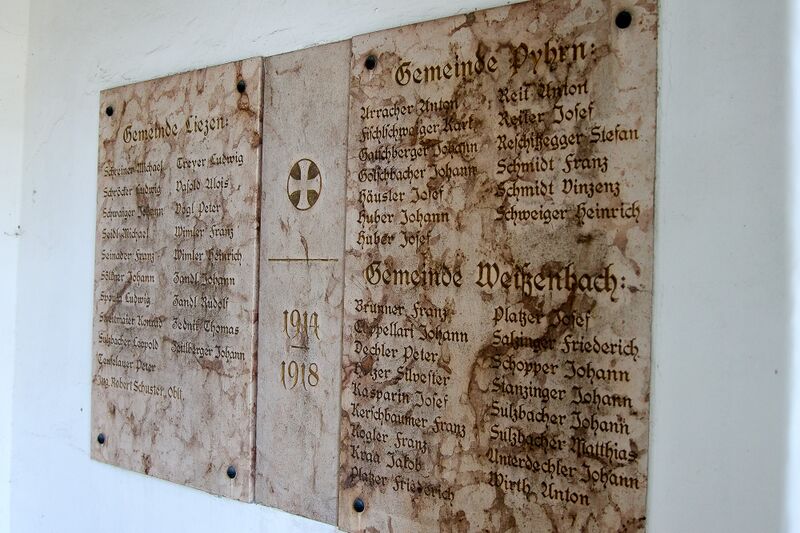 Gemeinde Liezen:
Schreiner Michael
Schröcker Ludwig
Schwaiger Johann
Seidl Michael
Seinader Franz
Söllner Johann
Ludwig
Konrad
Sulzbacher Leopold
Peter
Ing. Robert Schuster, Obli
Treyer Ludwig
Vasold Alois
Vögl Peter
Wimler Franz
Wimler Heinrich
Zandl Johann
Zandl Rudolf
Zednik Thomas
Zeilberger Johann
1914
–
1918
Gemeinde Pyhrn:
Arracher Anton
Fischlschweiger Karl
Gaschberger Johann
Golschbacher Josef
Häusler Josef
Huber Johann
Huber Josef
Reil Anton
Reiter Josef
Reschitzegger Stefan
Schmidt Franz
Schmidt Vinzenz
Schweiger Heinrich
Gemeinde Weißenbach:
Brunner Franz
Cappellari Johann
Dechler Peter
Silvester
Kasparin Josef
Kerschbaumer Franz
Kogler Franz
Kraa Jakob
Platzer Friederich
Platzer Josef
Salzinger Friederich
Schopper Johann
Stanzinger Johann
Sulzbacher Johann
Sulzbacher Matthias
Unterdechler Johann
Wirth Anton